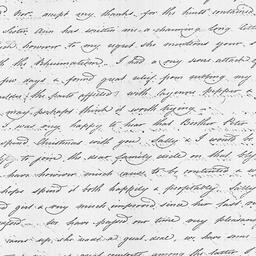 accept my thanks for the hints contained
Sister Ann has written me a charming long letter
and however to my regret she mentions your
with the Rheumatism. I had a very severe attack of
few days & found great relief from rubbing my
the parts affected with cayenne pepper &
may perhaps think it worth trying.
I was very happy to hear that Brother Peter
spend Christmas with you Sally & I would
to join the dear family circle on that
have however much cause to be contented &
hopes spend it both happily & profitably. Sally
girl & very much improved since her last
We have passed our time very pleasantly
came up, she made a great deal, we have seen
among the latter